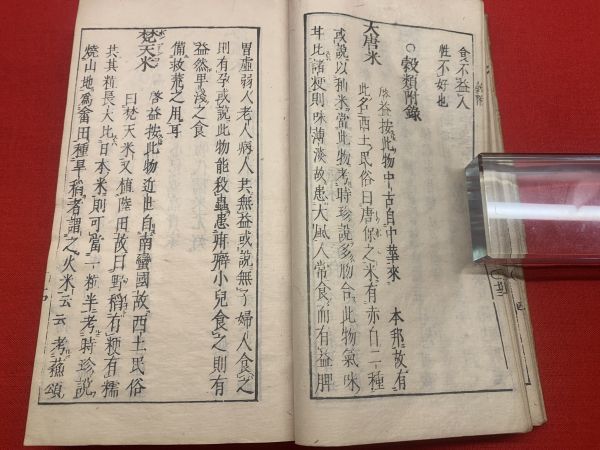 食不益人
性不好也
○穀類附錄
大唐米
啓益按此物中古自中華來 本邦故有
此名西土民俗曰唐保之米有赤白二種
或說以秈米當此物考時珍說多胗合此物氣味
甘比諸粳則味薄淡故患大風人常食而有益脾
胃虛弱人老人病人共無益或說無了婦人食之
則有孕或說此物能殺蟲患癖小兒食之則有
益然卑淺之食
備救荒之用耳
梵天米
啓益按此物近世自南蠻國故西土民俗
曰梵天米又植陸田故曰野稻有粳有糯
共其精長大比日本米則可當一粒半考時珍說
燒山地爲畬田種旱稻者謂之火米云云考蘇頌